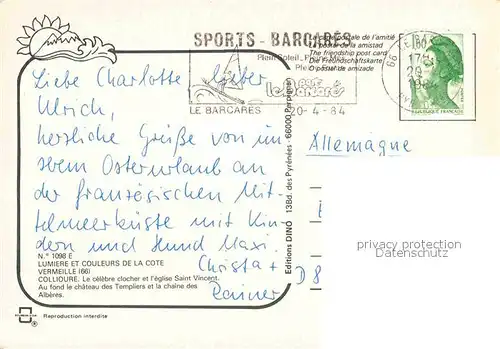 SPORTS - BARCARÈS
Plein Soleil, Pleine Mer
LE BARCARES
20-4-84
La carte postale de l'amitié
La postal de la amistad
The friendship post card
Die Freundschaftskarte
O postal de amizade
66 LE
17
20
RÉPUBLIQUE FRANÇAISE
Liebe Charlotte, lieber
Ulrich,
herzliche Grüße von un
serem Osterurlaub an
der französischen Mit-
telmeerküste mit Kin-
dern und Hund Maxi.
Christa +
Rainer
Allemagne
D 8
N.° 1098 E
LUMIERE ET COULEURS DE LA COTE
VERMEILLE (66)
COLLIOURE. Le célèbre clocher et l'église Saint Vincent.
Au fond le château des Templiers et la chaîne des
Albères.
Editions DINO 138d. des Pyrénées - 66000 Perpignan
Reproduction interdite
privacy protection
Datenschutz